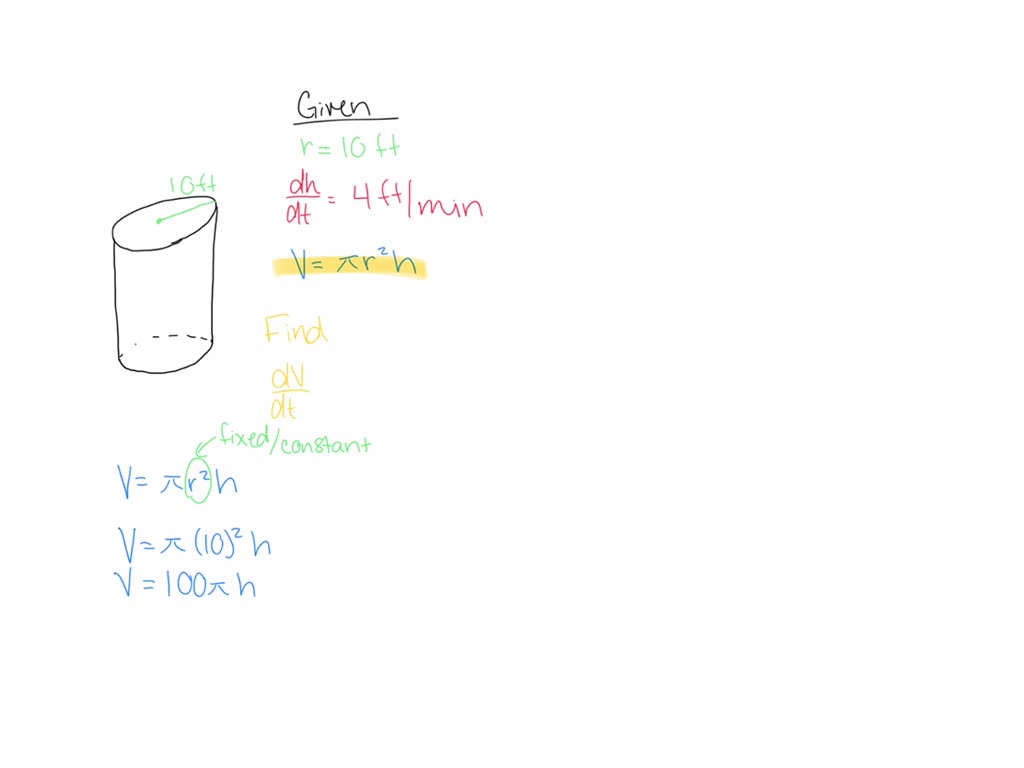 Given
r = 10 ft
10ft
dh/dt = 4 ft/min
V = πr²h
Find
dV/dt
fixed/constant
V = πr²h
V = π(10)²h
V = 100πh